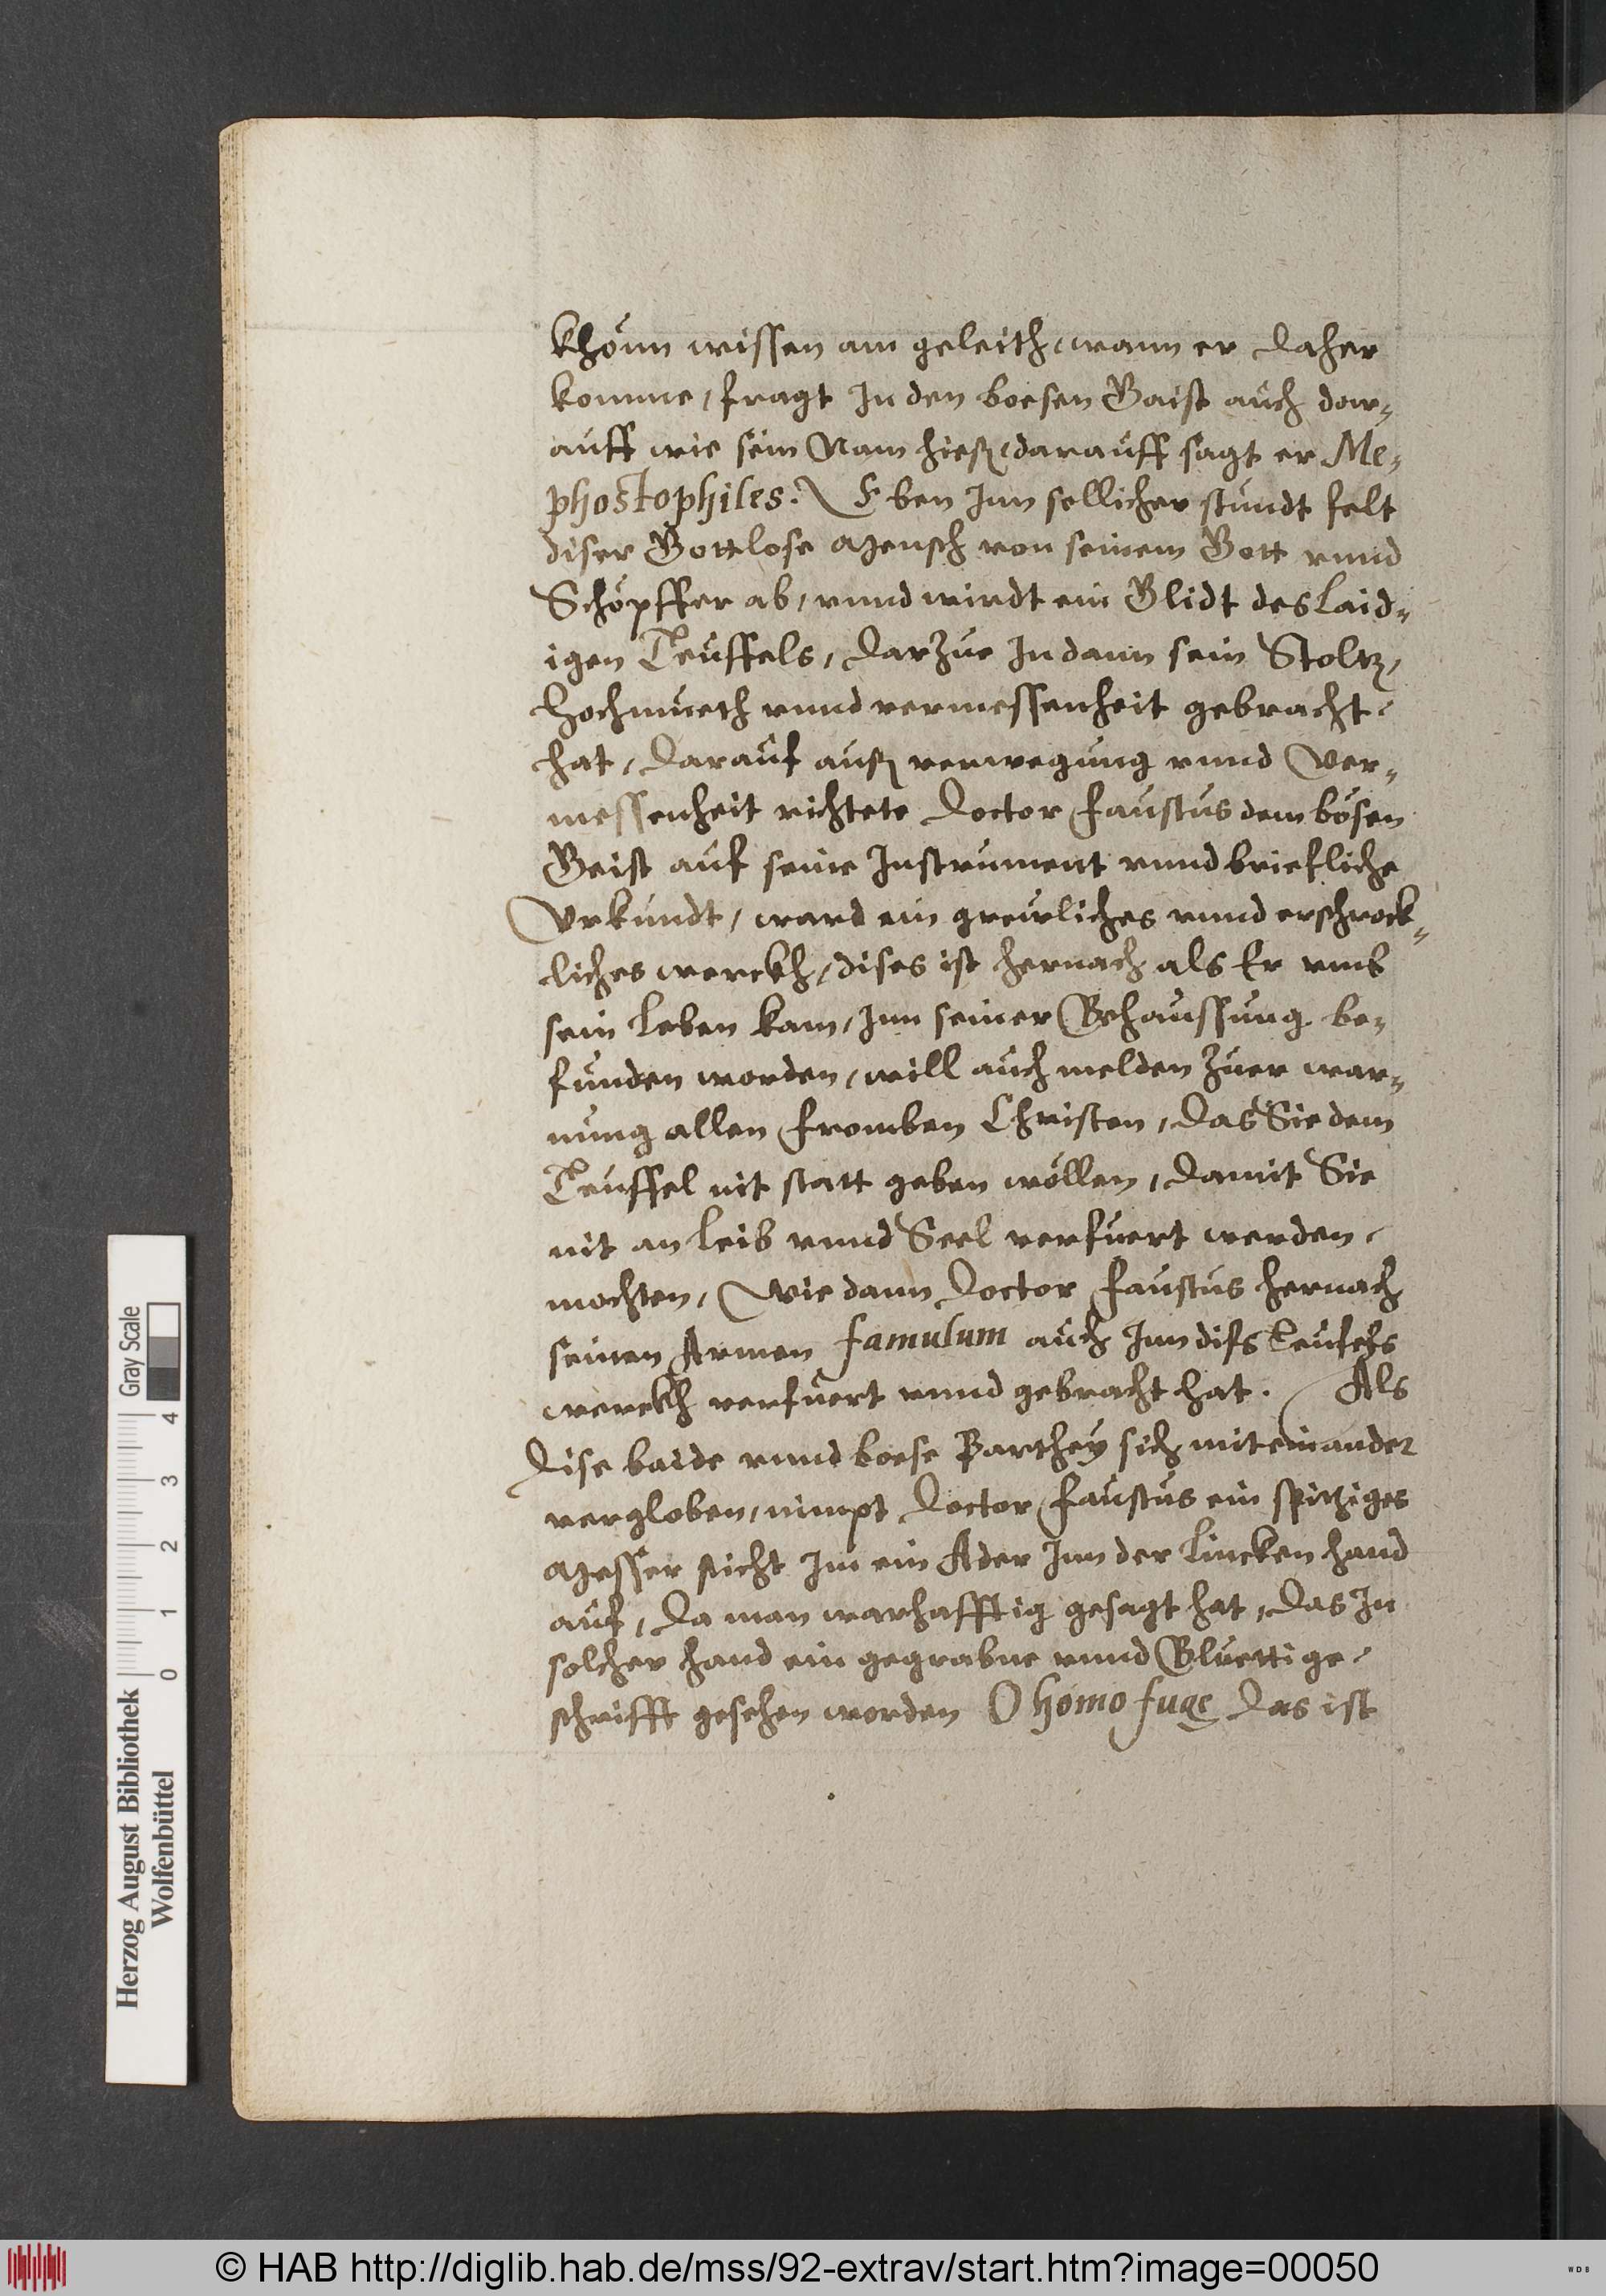 khönn wissen am geleith, wann er daher
komme, fragt In den boesen Gaist auch dar-
auff wie sein Nam hieß, darauff sagt er Me-
phostophiles. Eben Inn sollicher stundt felt
diser Gottlose Mensch von seinem Gott vnnd
Schöpffer ab, vnnd wirdt ein Glidt des laid-
igen Teuffels, darzue In dann sein Stoltz,
Hochmueth vnnd vermessenheit gebracht
hat, darauf auß verwegung vnnd Ver-
messenheit richtete Doctor Faustus dem bösen
Geist auf seine Instrument vnnd briefliche
Vrkundt, ward ein grewliches vnnd erschrock-
liches werckh, dises ist hernach als Er vmb
sein leben kam, Inn seiner Behaussung be-
funden worden, will auch melden zuer war-
nung allen fromben Christen, das Sie dem
Teuffel nit statt geben wöllen, damit Sie
nit an leib vnnd Seel verfuert werden
mochten, Wie dann Doctor Faustus hernach
seinen Armen famulum auch Inn diss teufels
werckh verfuert vnnd gebracht hat. Als
dise baide vnnd boese Parthey sich mit einander
vergloben, nimpt Doctor Faustus ein spitziges
Messer sticht Im ein Ader Inn der lincken hand
auf, da man warhafftig gesagt hat, das In
solcher hand ein gegrabne vnnd Bluettige
schrifft gesehen worden O homo fuge das ist
Herzog August Bibliothek
Wolfenbüttel
Gray Scale
0 1 2 3 4
© HAB http://diglib.hab.de/mss/92-extrav/start.htm?image=00050
WDB